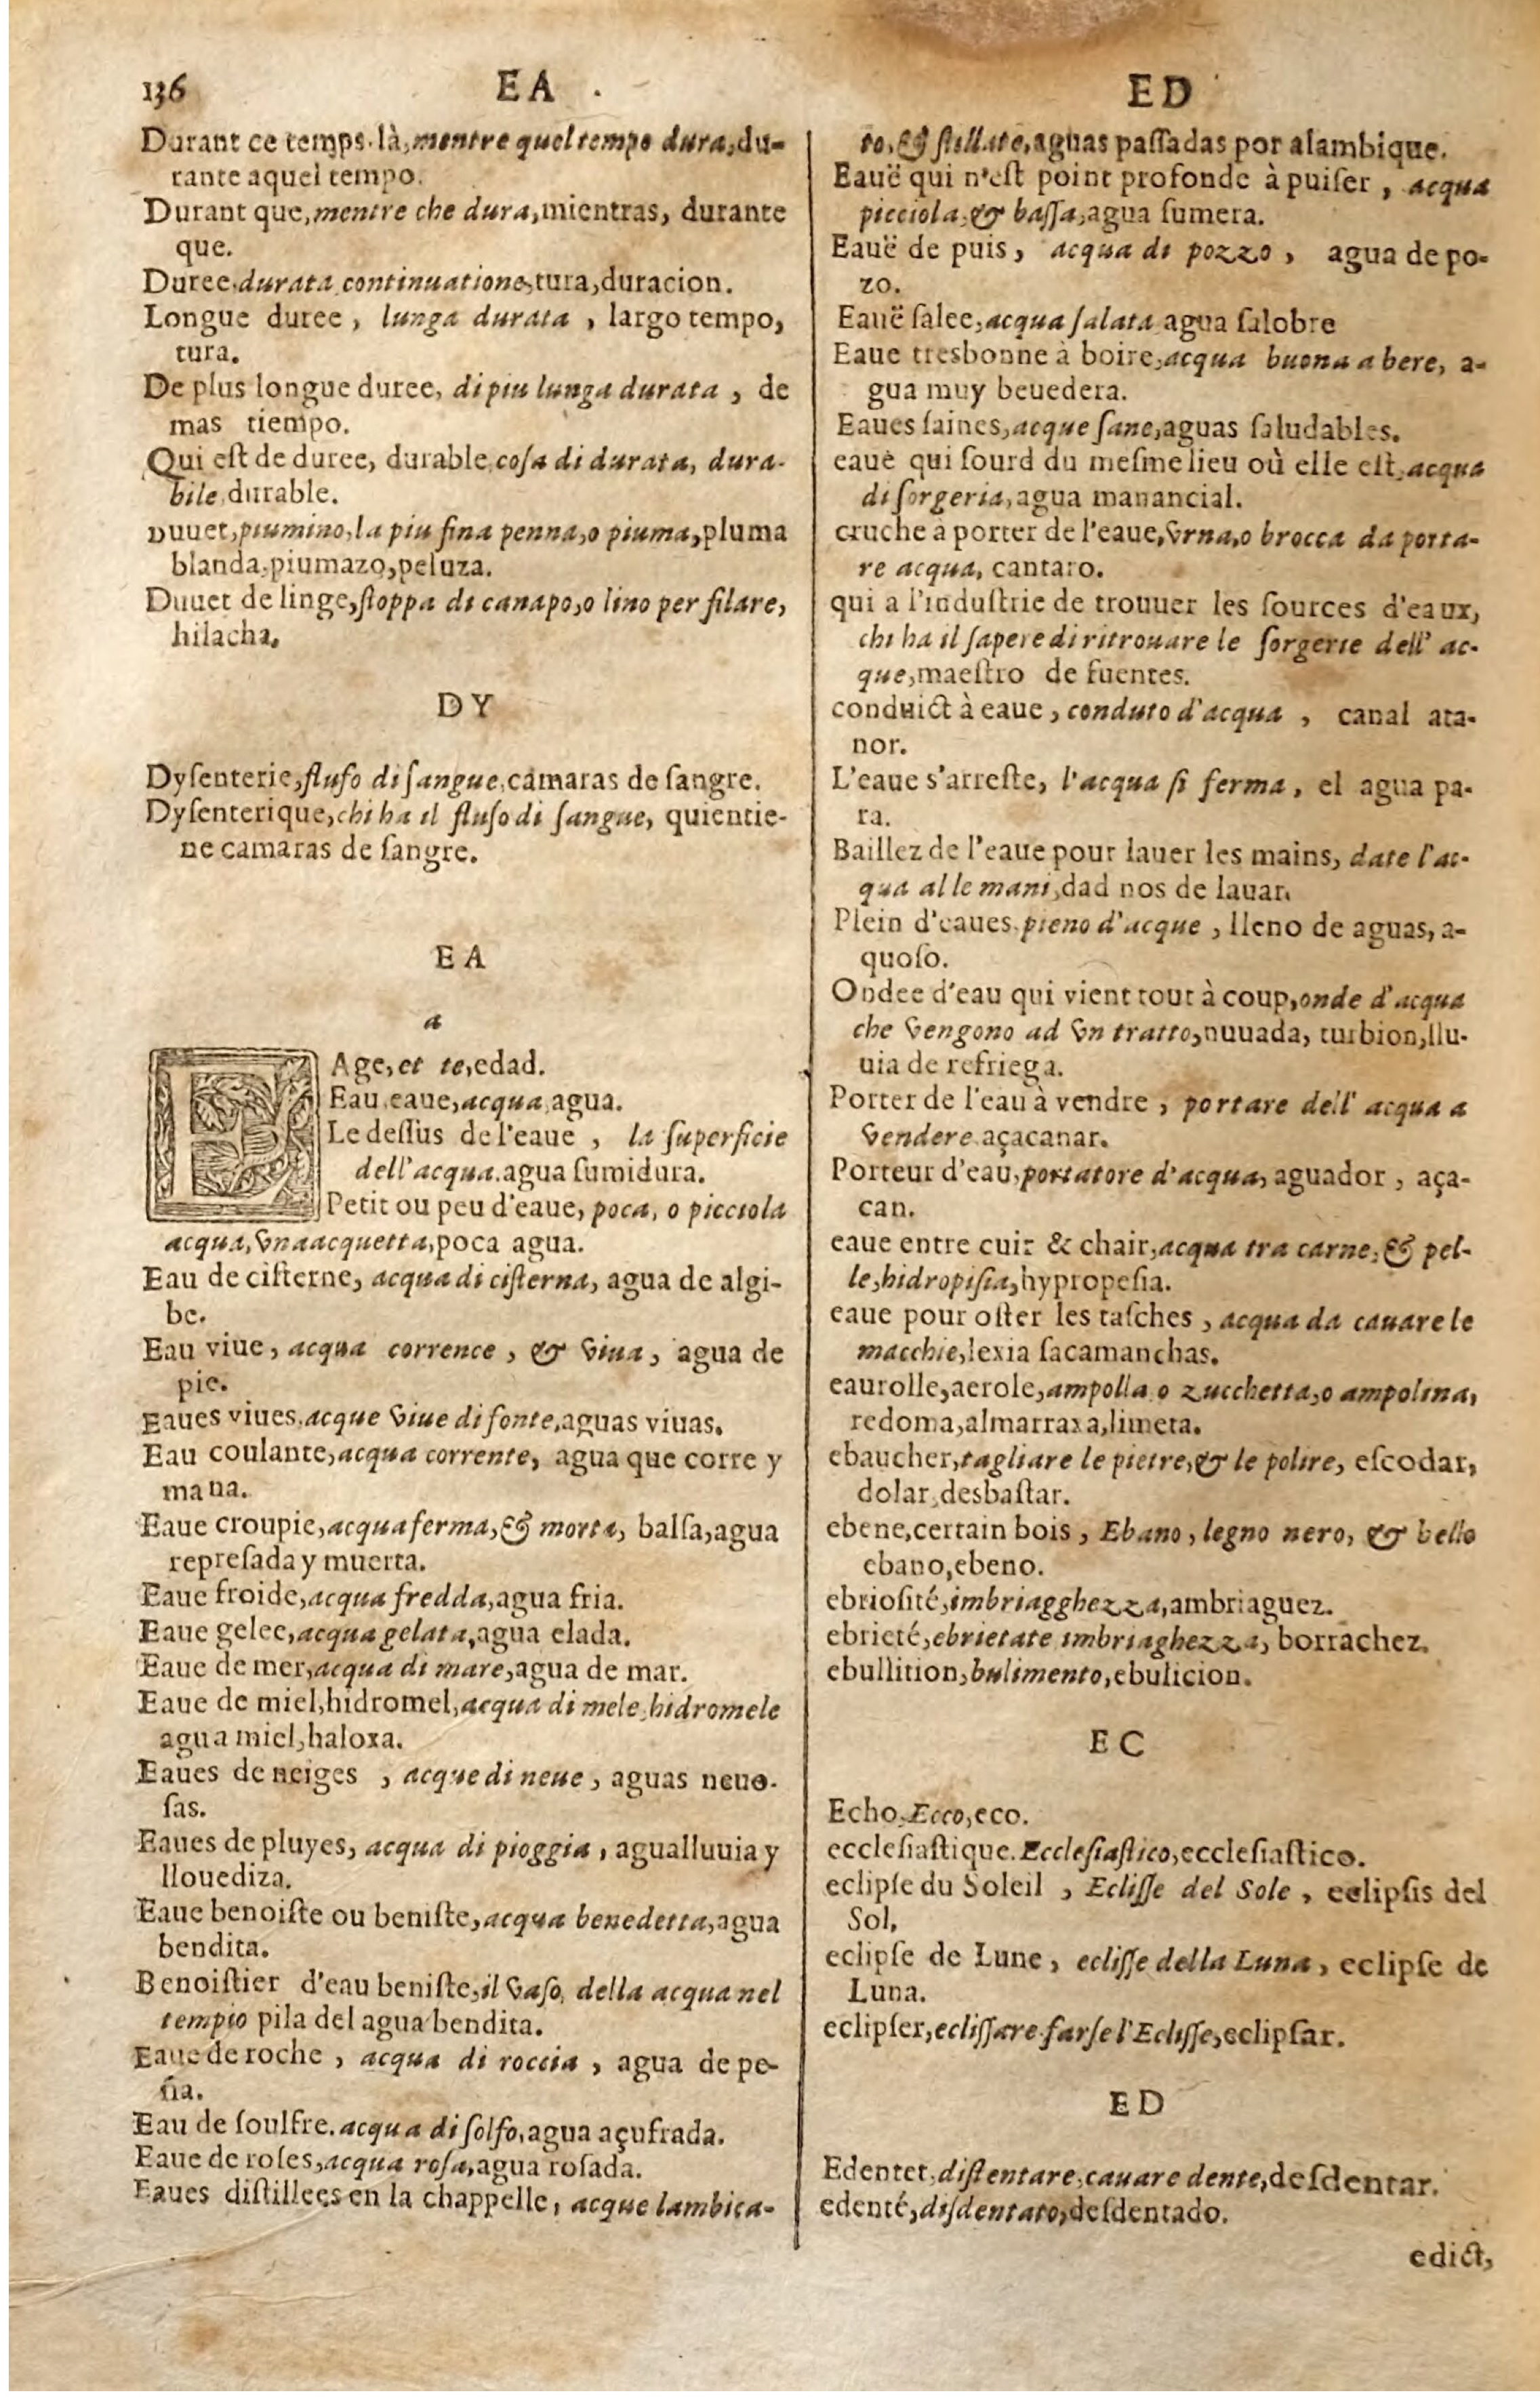 136
EA
ED
Durant ce temps-là, mentre quel tempo dura, du-
rante aquel tempo.
Durant que, mentre che dura, mientras, durante
que.
Duree, durata continuatione, tura, duracion.
Longue duree, lunga durata, largo tempo,
tura.
De plus longue duree, di piu lunga durata, de
mas tiempo.
Qui est de duree, durable, cosa di durata, dura-
bile, durable.
Duuet, piumino, la piu fina penna, o piuma, pluma
blanda, piumazo, peluza.
Duuet de linge, stoppa di canapo, o lino per filare,
hilacha.
DY
Dysenterie, flufo di sangue, camaras de sangre.
Dysenterique, chi ha il fluso di sangue, quientie-
ne camaras de sangre.
EA
a
E
Age, et te, edad.
Eau, eaue, acqua, agua.
Le dessus de l'eaue, la superficie
dell'acqua. agua sumidura.
Petit ou peu d'eaue, poca, o picciola
acqua, vna acquetta, poca agua.
Eau de cisterne, acqua di cisterna, agua de algi-
be.
Eau viue, acqua corrence, & viua, agua de
pie.
Eaues viues, acque viue di fonte, aguas viuas.
Eau coulante, acqua corrente, agua que corre y
maua.
Eaue croupie, acqua ferma, & morta, balsa, agua
represada y muerta.
Eaue froide, acqua fredda, agua fria.
Eaue gelee, acqua gelata, agua elada.
Eaue de mer, acqua di mare, agua de mar.
Eaue de miel, hidromel, acqua di mele, hidromele
agua miel, haloxa.
Eaues de neiges, acque di neue, aguas neuo-
sas.
Eaues de pluyes, acqua di pioggia, agualluuia y
llouediza.
Eaue benoiste ou beniste, acqua benedetta, agua
bendita.
Benoistier d'eau beniste, il vaso, della acqua nel
tempio pila del agua bendita.
Eaue de roche, acqua di roccia, agua de pe-
ña.
Eau de soulfre. acqua di solfo, agua açufrada.
Eaue de roses, acqua rosa, agua rosada.
Eaues distillees en la chappelle, acque lambica-
to, & stillate, aguas passadas por alambique.
Eauë qui n'est point profonde à puiser, acqua
picciola, & bassa, agua sumera.
Eauë de puis, acqua di pozzo, agua de po-
zo.
Eauë salee, acqua salata agua salobre
Eaue tresbonne à boire, acqua buona a bere, a-
gua muy beuedera.
Eaues saines, acque sane, aguas saludables.
eaue qui sourd du mesme lieu où elle est, acqua
di sorgeria, agua manancial.
cruche à porter de l'eaue, vrna, o brocca da porta-
re acqua, cantaro.
qui a l'industrie de trouuer les sources d'eaux,
chi ha il sapere di ritrouare le sorgerie dell' ac-
que, maestro de fuentes.
conduict à eaue, conduto d'acqua, canal ata-
nor.
L'eaue s'arreste, l'acqua si ferma, el agua pa-
ra.
Baillez de l'eaue pour lauer les mains, date l'ac-
qua alle mani, dad nos de lauar.
Plein d'eaues. pieno d'acque, lleno de aguas, a-
quoso.
Ondee d'eau qui vient tout à coup, onde d'acqua
che vengono ad vn tratto, nuuada, turbion, llu-
uia de refriega.
Porter de l'eau à vendre, portare dell' acqua a
vendere açacanar.
Porteur d'eau, portatore d'acqua, aguador, aça-
can.
eaue entre cuir & chair, acqua tra carne, & pel-
le, hidropisia, hypropesia.
eaue pour oster les tasches, acqua da cauare le
macchie, lexia sacamanchas.
eaurolle, aerole, ampolla o zucchetta, o ampolina,
redoma, almarraxa, limeta.
ebaucher, tagliare le pietre, & le polire, escodar,
dolar, desbastar.
ebene, certain bois, Ebano, legno nero, & bello
ebano, ebeno.
ebriosité, imbriagghezza, ambriaguez.
ebrieté, ebrietate imbriaghezza, borrachez.
ebullition, bulimento, ebulicion.
EC
Echo, Ecco, eco.
ecclesiastique. Ecclesiastico, ecclesiastico.
eclipse du Soleil, Eclisse del Sole, eclipsis del
Sol.
eclipse de Lune, eclisse della Luna, eclipse de
Luna.
eclipser, eclissare farse l'Eclisse, eclipsar.
ED
Edenter, distentare, cauare dente, desdentar.
edenté, disdentato, desdentado.
edict,